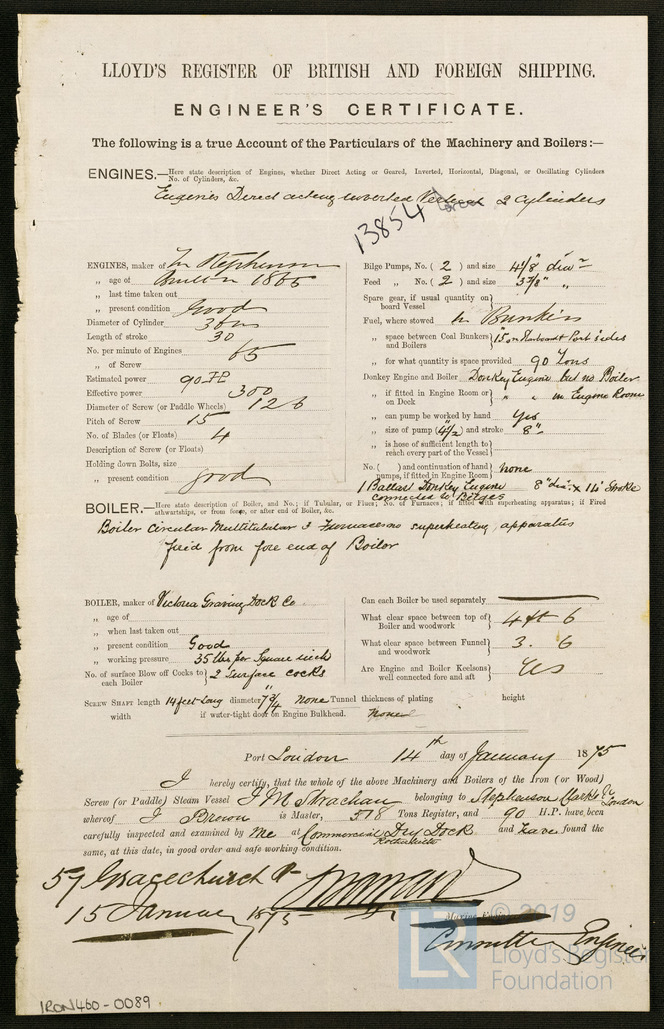 LLOYD'S REGISTER OF BRITISH AND FOREIGN SHIPPING.
ENGINEER'S CERTIFICATE.
The following is a true Account of the Particulars of the Machinery and Boilers:—
ENGINES.—Here state description of Engines, whether Direct Acting or Geared, Inverted, Horizontal, Diagonal, or Oscillating Cylinders
No. of Cylinders, &c.
Engines Direct acting inverted 2 Cylinders
13854
ENGINES, maker of Stephenson
„ age of 1865
„ last time taken out
„ present condition Good
Diameter of Cylinder 36
Length of stroke 30
No. per minute of Engines 65
„ of Screw
Estimated power 90 HP
Effective power 300
Diameter of Screw (or Paddle Wheels) 12 6
Pitch of Screw 15
No. of Blades (or Floats) 4
Description of Screw (or Floats)
Holding down Bolts, size
„ present condition good
Bilge Pumps, No. ( 2 ) and size 4 1/8" diar
Feed „ No. ( 2 ) and size 3 7/8" „
Spare gear, if usual quantity on
board Vessel
Fuel, where stowed In Bunkers
„ space between Coal Bunkers
and Boilers 15" on Starboard & Port sides
„ for what quantity is space provided 90 Tons
Donkey Engine and Boiler Donkey Engine but no Boiler
„ if fitted in Engine Room or
on Deck „ „ in Engine Room
„ can pump be worked by hand Yes
„ size of pump (4 1/2) and stroke 8"
„ is hose of sufficient length to
reach every part of the Vessel
No. ( ) and continuation of hand
pumps, if fitted in Engine Room none
1 Ballast Donkey Engine 8" dia. x 14" Stroke
connected to Bilges
BOILER.—Here state description of Boiler, and No.; if Tubular, or Flues; No. of Furnaces; if fitted with superheating apparatus; if Fired
athwartships, or from fore, or after end of Boiler, &c.
Boiler Circular Multitubular 3 Furnaces no superheating apparatus
fired from fore end of Boiler
BOILER, maker of Victoria Graving Dock Co
„ age of
„ when last taken out
„ present condition Good
„ working pressure 35 lbs per Square inch
No. of surface Blow off Cocks to
each Boiler 2 Surface cocks
Can each Boiler be used separately
What clear space between top of
Boiler and woodwork 4 ft 6
What clear space between Funnel
and woodwork 3. 6
Are Engine and Boiler Keelsons
well connected fore and aft Yes
SCREW SHAFT length 14 feet long diameter 7 3/4" none Tunnel thickness of plating height
width if water-tight door on Engine Bulkhead. None
Port London 14th day of January 1875
I hereby certify, that the whole of the above Machinery and Boilers of the Iron (or Wood)
Screw (or Paddle) Steam Vessel J M Strachan belonging to Stephenson Clarke & Co London
whereof J Brown is Master, 578 Tons Register, and 90 H.P. have been
carefully inspected and examined by me at Commercial Dry Dock and have found the
Rotherhithe
same, at this date, in good order and safe working condition.
59 Gracechurch St
15 January 1875
Committee Engineer
© 2019
LR
Lloyd's Register
Foundation
IRON460-0089